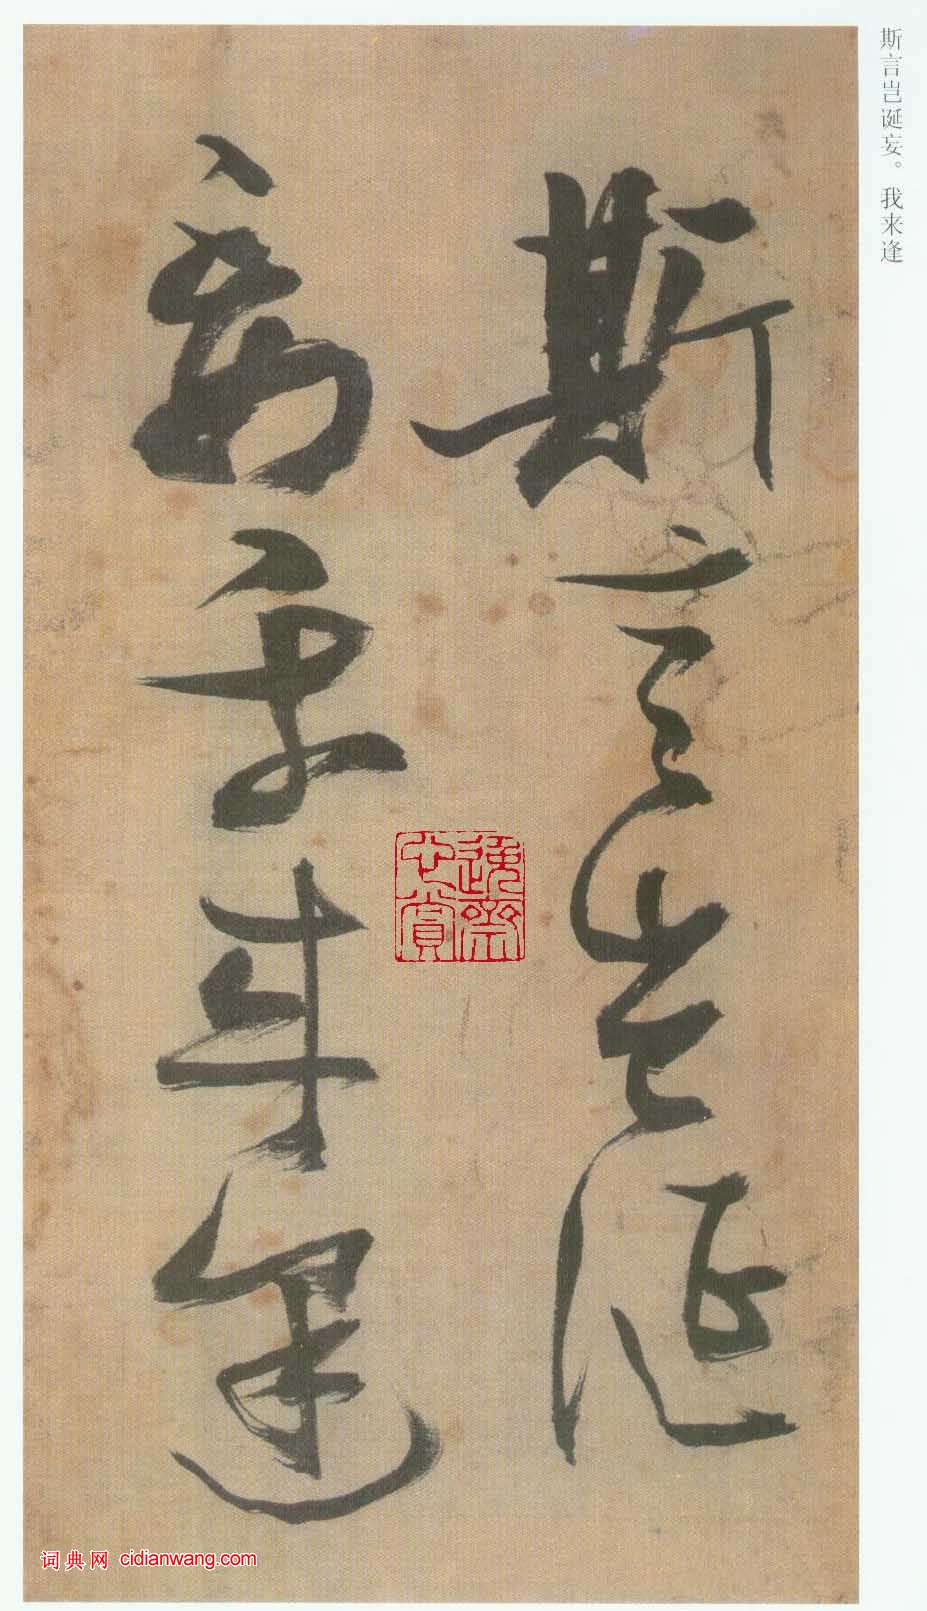 斯言岂诞妄。我来逢
斯言豈誕
妄我来逢
词典网 cidianwang.com